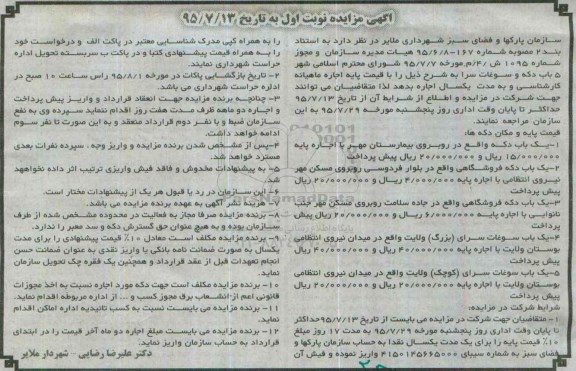 آگهی مزایده نوبت اول به تاریخ ۹۵/۷/۱۳
سازمان پارکها و فضای سبز شهرداری ملایر در نظر دارد به استناد
بند۲ مصوبه شماره ۱۶۷-۹۵/۶/۸ هیات مدیره سازمان و مجوز
شماره ۱۰۹۵ ش /۴/م مورخه ۹۵/۷/۷ شورای محترم اسلامی شهر
۵ باب دکه و سوغات سرا به شرح ذیل را با قیمت پایه اجاره ماهیانه
کارشناسی و به مدت یکسال اجاره بدهد لذا متقاضیان می توانند
جهت شرکت در مزایده و اطلاع از شرایط آن از تاریخ ۹۵/۷/۱۳
حداکثر تا پایان وقت اداری روز پنجشنبه مورخه ۹۵/۷/۲۹ به این
سازمان مراجعه نمایند.
قیمت پایه و مکان دکه ها:
۱-یک باب دکه واقع در روبروی بیمارستان مهر با اجاره پایه
۱۵/۰۰۰/۰۰۰ ریال و ۲۰/۰۰۰/۰۰۰ ریال پیش پرداخت
۲-یک باب دکه فروشگاهی واقع در بلوار فردوسی روبروی مسکن مهر
نیروی انتظامی با اجاره پایه ۳/۰۰۰/۰۰۰ ریال و ۲۰/۰۰۰/۰۰۰ ریال
پیش پرداخت
۳-یک باب دکه فروشگاهی واقع در جاده سلامت روبروی مسکن مهر جنب
نانوایی با اجاره پایه ۶/۰۰۰/۰۰۰ ریال و ۲۰/۰۰۰/۰۰۰ ریال پیش
پرداخت
۴-یک باب سوغات سرای (بزرگ) ولایت واقع در میدان نیروی انتظامی
بوستان ولایت با اجاره پایه ۴۰/۰۰۰/۰۰۰ ریال و ۴۰/۰۰۰/۰۰۰ ریال
پیش پرداخت
۵-یک باب سوغات سرای (کوچک) ولایت واقع در میدان نیروی انتظامی
بوستان ولایت با اجاره پایه ۲۰/۰۰۰/۰۰۰ ریال و ۲۰/۰۰۰/۰۰۰ ریال
پیش پرداخت
شرایط شرکت در مزایده:
۱-متقاضیان جهت شرکت در مزایده می بایست از تاریخ ۹۵/۷/۱۳حداکثر
تا پایان وقت اداری روز پنجشنبه مورخه ۹۵/۷/۲۹ به مدت ۱۷ روز مبلغ
۱۰٪ قیمت پایه را برای یک مدت یکسال نقدا به حساب سازمان پارکها و
فضای سبز به شماره سیبای ۴۱۵۰۱۴۵۶۶۵۰۰۰ واریز نموده و فیش آن
را به همراه کپی مدرک شناسایی معتبر در پاکت الف و درخواست خود
را به همراه قیمت پیشنهادی کتبا و در پاکت ب سربسته تحویل اداره
حراست شهرداری نمایند.
۲- تاریخ بازگشایی پاکات در مورخه ۹۵/۸/۱ راس ساعت ۱۰ صبح در
اداره حراست شهرداری می باشد.
۳-چنانچه برنده مزایده جهت انعقاد قرارداد و واریز پیش پرداخت
و اجاره دو ماهه ظرف مدت هفت روز اقدام ننماید سپرده وی به نفع
سازمان ضبط و با نفر دوم قرارداد منعقد و به این صورت تا نفر سوم
ادامه خواهد داشت.
۴-پس از مشخص شدن برنده مزایده و واریز وجه، سپرده نفرات بعدی
مسترد خواهد شد.
۵- به پیشنهادات مخدوش و فاقد فیش واریزی ترتیب اثر داده نخواهد
شد.
۶- این سازمان در رد یا قبول هر یک از پیشنهادات مختار است.
۷- هزینه نشر آگهی به عهده برنده مزایده می باشد.
۸- برنده مزایده صرفا مجاز به فعالیت در محدوده مشخص شده از طرف
سازمان بوده و به هیچ عنوان حق گسترش دکه و سد معبر را ندارد.
۹- برنده مزایده مکلف است معادل ۱۰٪ قیمت پیشنهادی را برای مدت
یکسال به صورت ضمانت نامه بانکی یا واریز نقدی به عنوان ضمانت حسن
انجام تعهدات قبل از عقد قرارداد و همچنین یک فقره چک تحویل سازمان
نماید.
۱۰- برنده مزایده مکلف است جهت دکه مورد اجاره نسبت به اخذ مجوزات
قانونی اعم از انشعاب برق مجوز کسب و ... از اداره مربوطه اقدام نماید.
۱۱- برنده مزایده می بایست نسبت به کسب تائیدیه اداره اماکن اقدام
نماید.
۱۲- برنده مزایده می بایست مبلغ اجاره دو ماه آخر قیمت را در ابتدای
قرارداد به حساب سازمان واریز نماید.
دکتر علیرضا رضایی - شهردار ملایر